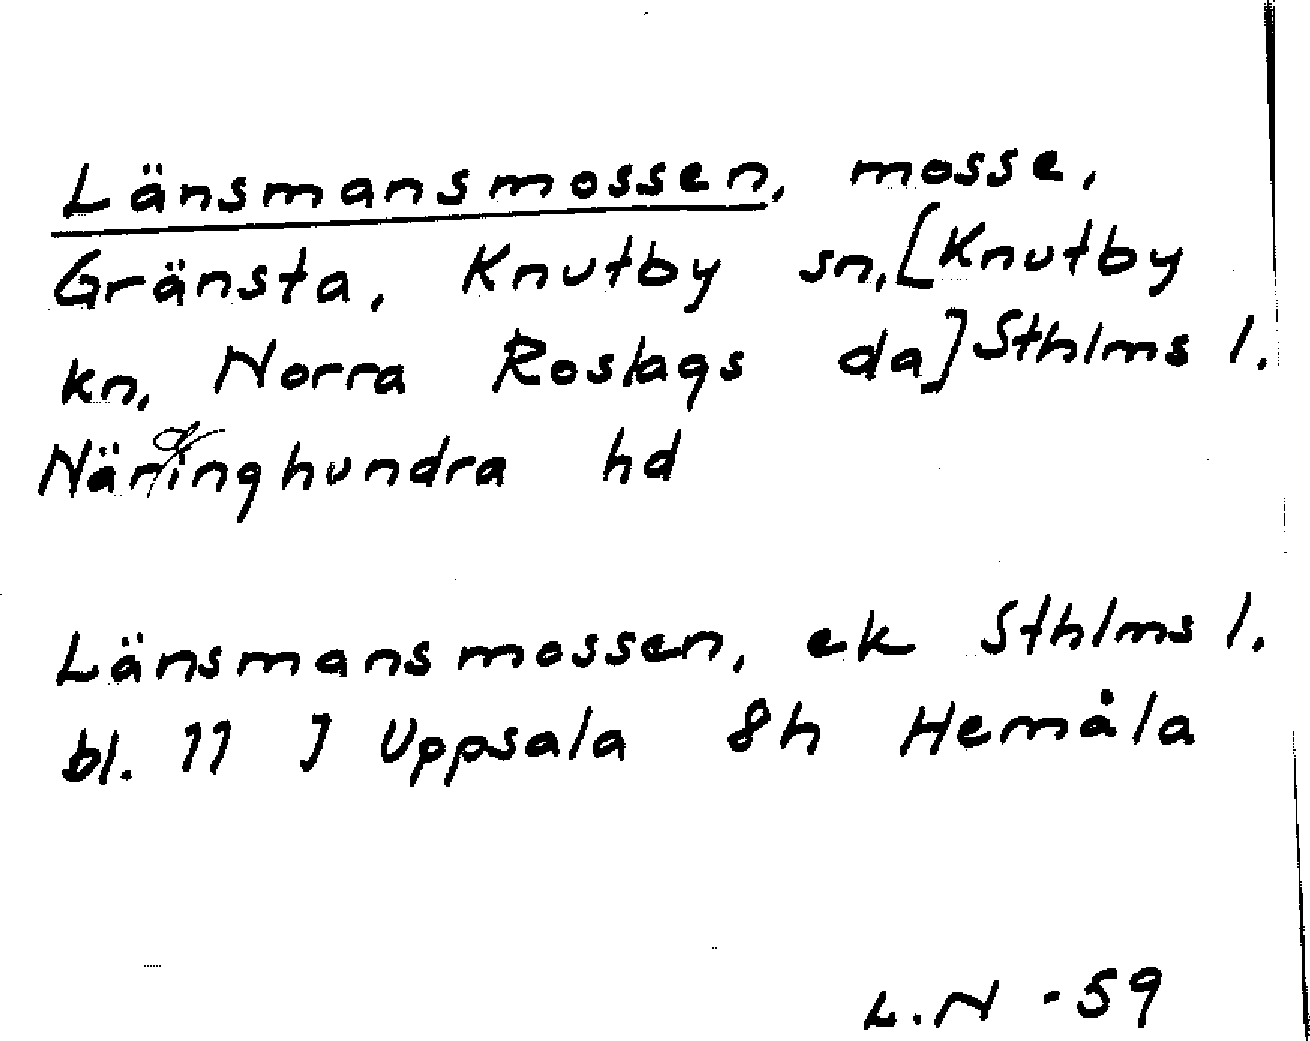 Länsmansmossen, mosse,
Gränsta, Knutby sn, [Knutby
kn, Norra Roslags da] Sthlms l.
Närdinghundra hd
Länsmansmossen, ek Sthlms l.
bl. 11 J Uppsala 8h Hemåla
L.N -59